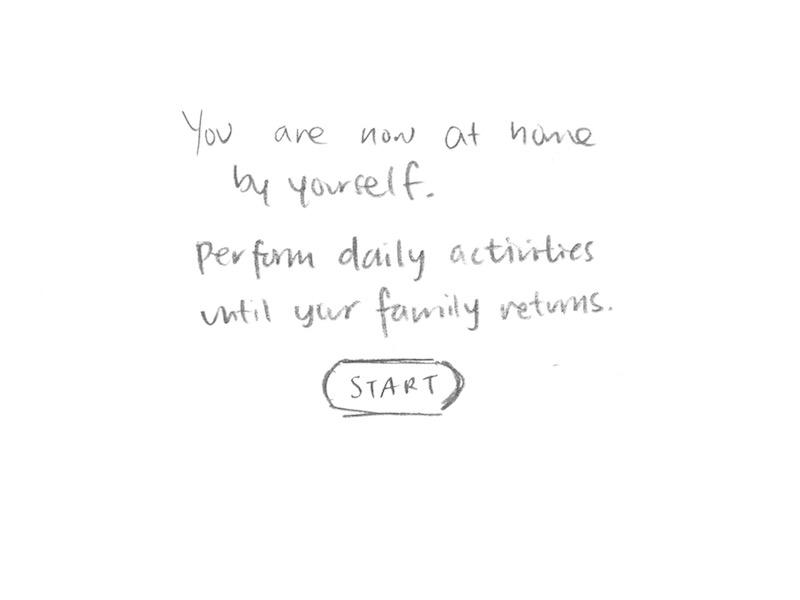 You are now at home
by yourself.
Perform daily activities
until your family returns.
START